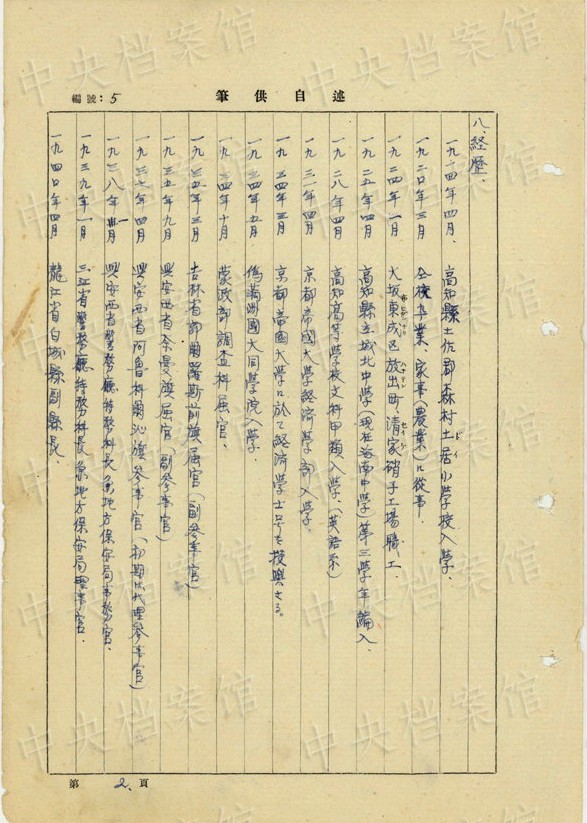 編號：5
述自供筆
八、経歴、
一九一四年四月、高知縣土佐郡森村土居小学校入学、
一九二〇年三月 仝校卒業、家事（農業）ﾆ從事、
一九二四年一月 大坂東成区放出町、清家硝子工場職工、
一九二五年四月 高知縣立城北中学（現在海南中学）第三学年編入、
一九二八年四月 高知高等学校文科甲類入学、（英語系）
一九三一年四月 京都帝國大学経済学部入学、
一九三四年三月 京都帝國大学ﾆ於て経済学士号を授與さる。
一九三四年五月 偽満洲國大同学院入学、
一九三四年十月 蒙政部調査科属官、
一九三五年三月 吉林省郭爾羅斯前旗属官（副参事官）
一九三五年九月 興安西省奈曼旗属官（副参事官）
一九三七年四月 興安西省阿魯科爾沁旗参事官（初期は代理参事官）
一九三八年 月 興安西省警務廳特務科長兼地方保安局事務官、
一九三九年一月 三江省警務廳特務科長兼地方保安局理事官、
一九四〇年四月 龍江省白城縣副縣長、
第 2 頁
中央档案馆